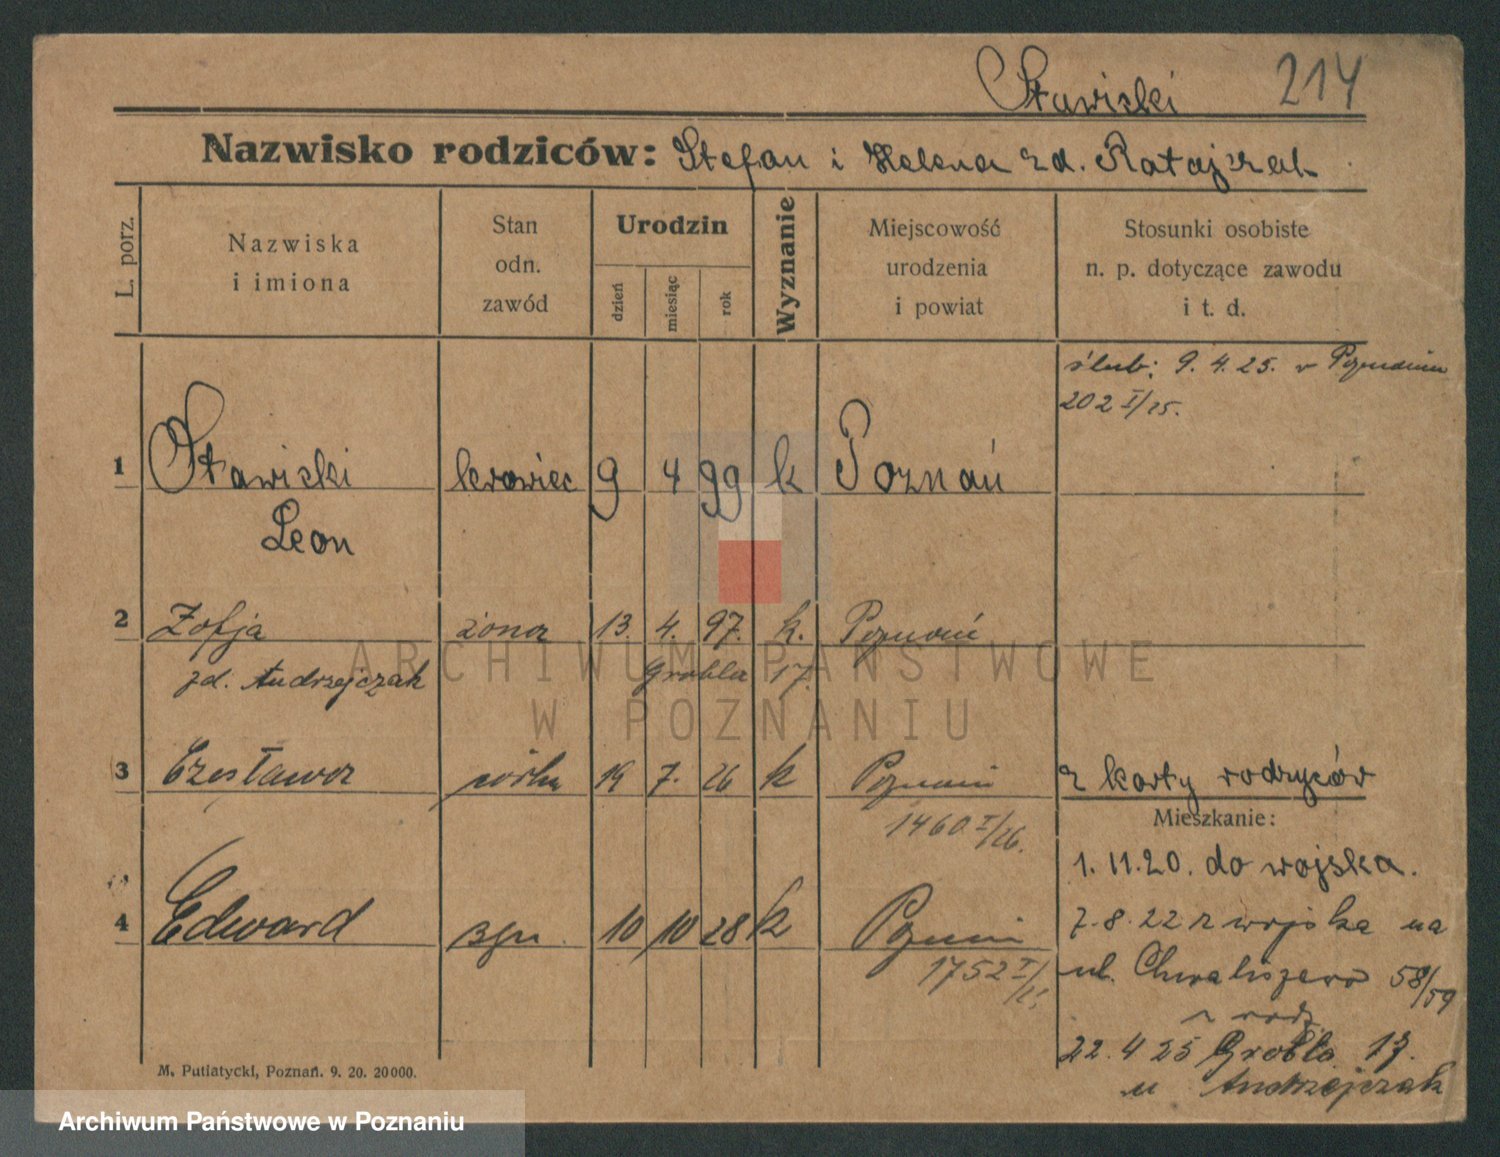 Stawiski 214
Nazwisko rodziców: Stefan i Helena zd. Ratajczak
L. porz.
Nazwiska
i imiona
Stan
odn.
zawód
Urodzin
dzień
miesiąc
rok
Wyznanie
Miejscowość
urodzenia
i powiat
Stosunki osobiste
n. p. dotyczące zawodu
i t. d.
ślub: 9. 4. 25. w Poznaniu
202 I/25.
1 Stawiski krawiec 9 4 99 k Poznań
Leon
2 Zofja żona 13. 4. 97. k. Poznań
zd. Andrzejczak Grobla 17.
3 Czesława córka 19 7. 26 k Poznań z karty rodziców
1460 I/26.
Mieszkanie:
1. 11. 20. do wojska.
4 Edward syn 10 10 28 k Poznań
1752 I/
7. 8. 22 z wojska na
ul. Chwaliszewo 58/59
z rodz.
22. 4 25 Grobla 17.
u Andrzejczak
M. Putiatycki, Poznań. 9. 20. 20000.
ARCHIWUM PAŃSTWOWE
W POZNANIU
Archiwum Państwowe w Poznaniu